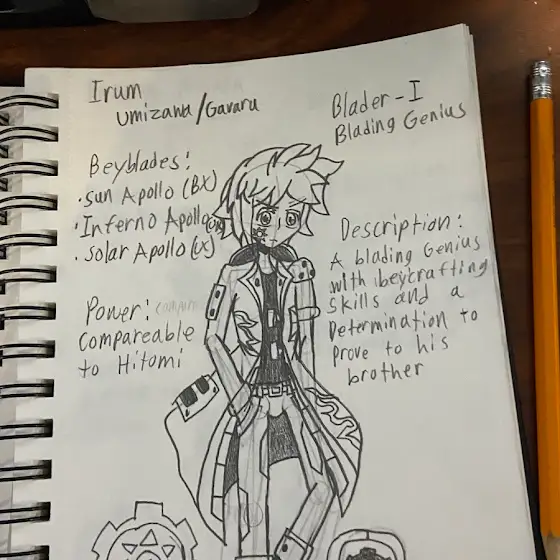 Irum
Umizawa/Gavaru
Blader-I
Blading Genius
Beyblades:
·Sun Apollo (BX)
·Inferno Apollo
·Solar Apollo (UX)
Power:
Compareable
to Hitomi
Description:
A blading Genius
with beycrafting
skills and a
Determination to
prove to his
brother